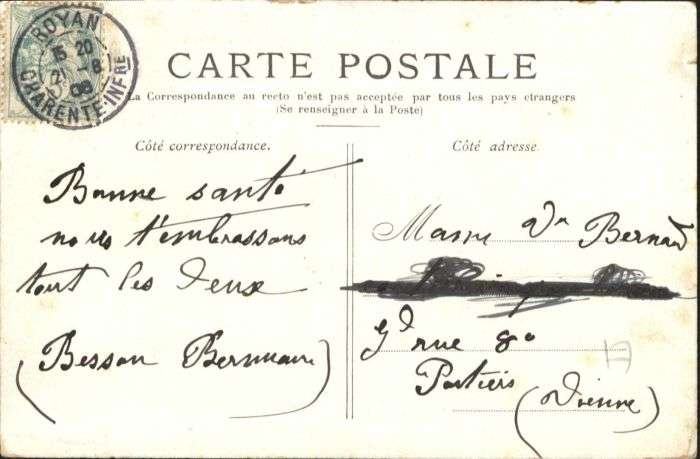 ROYAN
15 20
21 -8
08
CHARENTE-INFRE
CARTE POSTALE
La Correspondance au recto n'est pas acceptée par tous les pays étrangers
(Se renseigner à la Poste)
Côté correspondance.
Bonne santé
nous t'embrassons
tout les deux
(Besson
Côté adresse.
Vve Bernard
Gde rue 80
Poitiers
(Vienne)